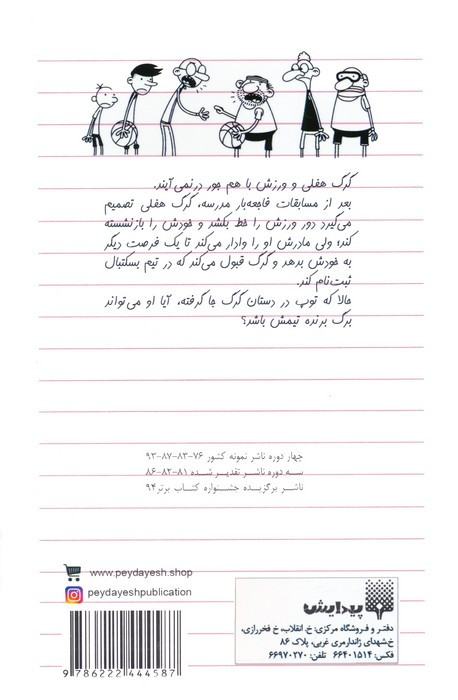 گرگ هفلی و ورزش با هم جور در نمی‌آیند.
بعد از مسابقات فاجعه‌بار مدرسه، گرگ هفلی تصمیم
می‌گیرد دور ورزش را خط بکشد و خودش را بازنشسته
کند؛ ولی مادرش او را وادار می‌کند تا یک فرصت دیگر
به خودش بدهد و گرگ قبول می‌کند که در تیم بسکتبال
ثبت‌نام کند.
حالا که توپ در دستان گرگ جا گرفته، آیا او می‌تواند
برگ برنده تیمش باشد؟
چهار دوره ناشر نمونه کشور ۷۶-۸۳-۸۷-۹۳
سه دوره ناشر تقدیر شده ۸۱-۸۲-۸۶
ناشر برگزیده جشنواره کتاب برتر ۹۴
www.peydayesh.shop
peydayeshpublication
پیدایش
دفتر و فروشگاه مرکزی: خ انقلاب، خ فخررازی،
خ شهدای ژاندارمری غربی، پلاک ۸۶
فکس: ۶۶۴۰۱۵۱۴ تلفن: ۶۶۹۷۰۲۷۰
9 786222 444587